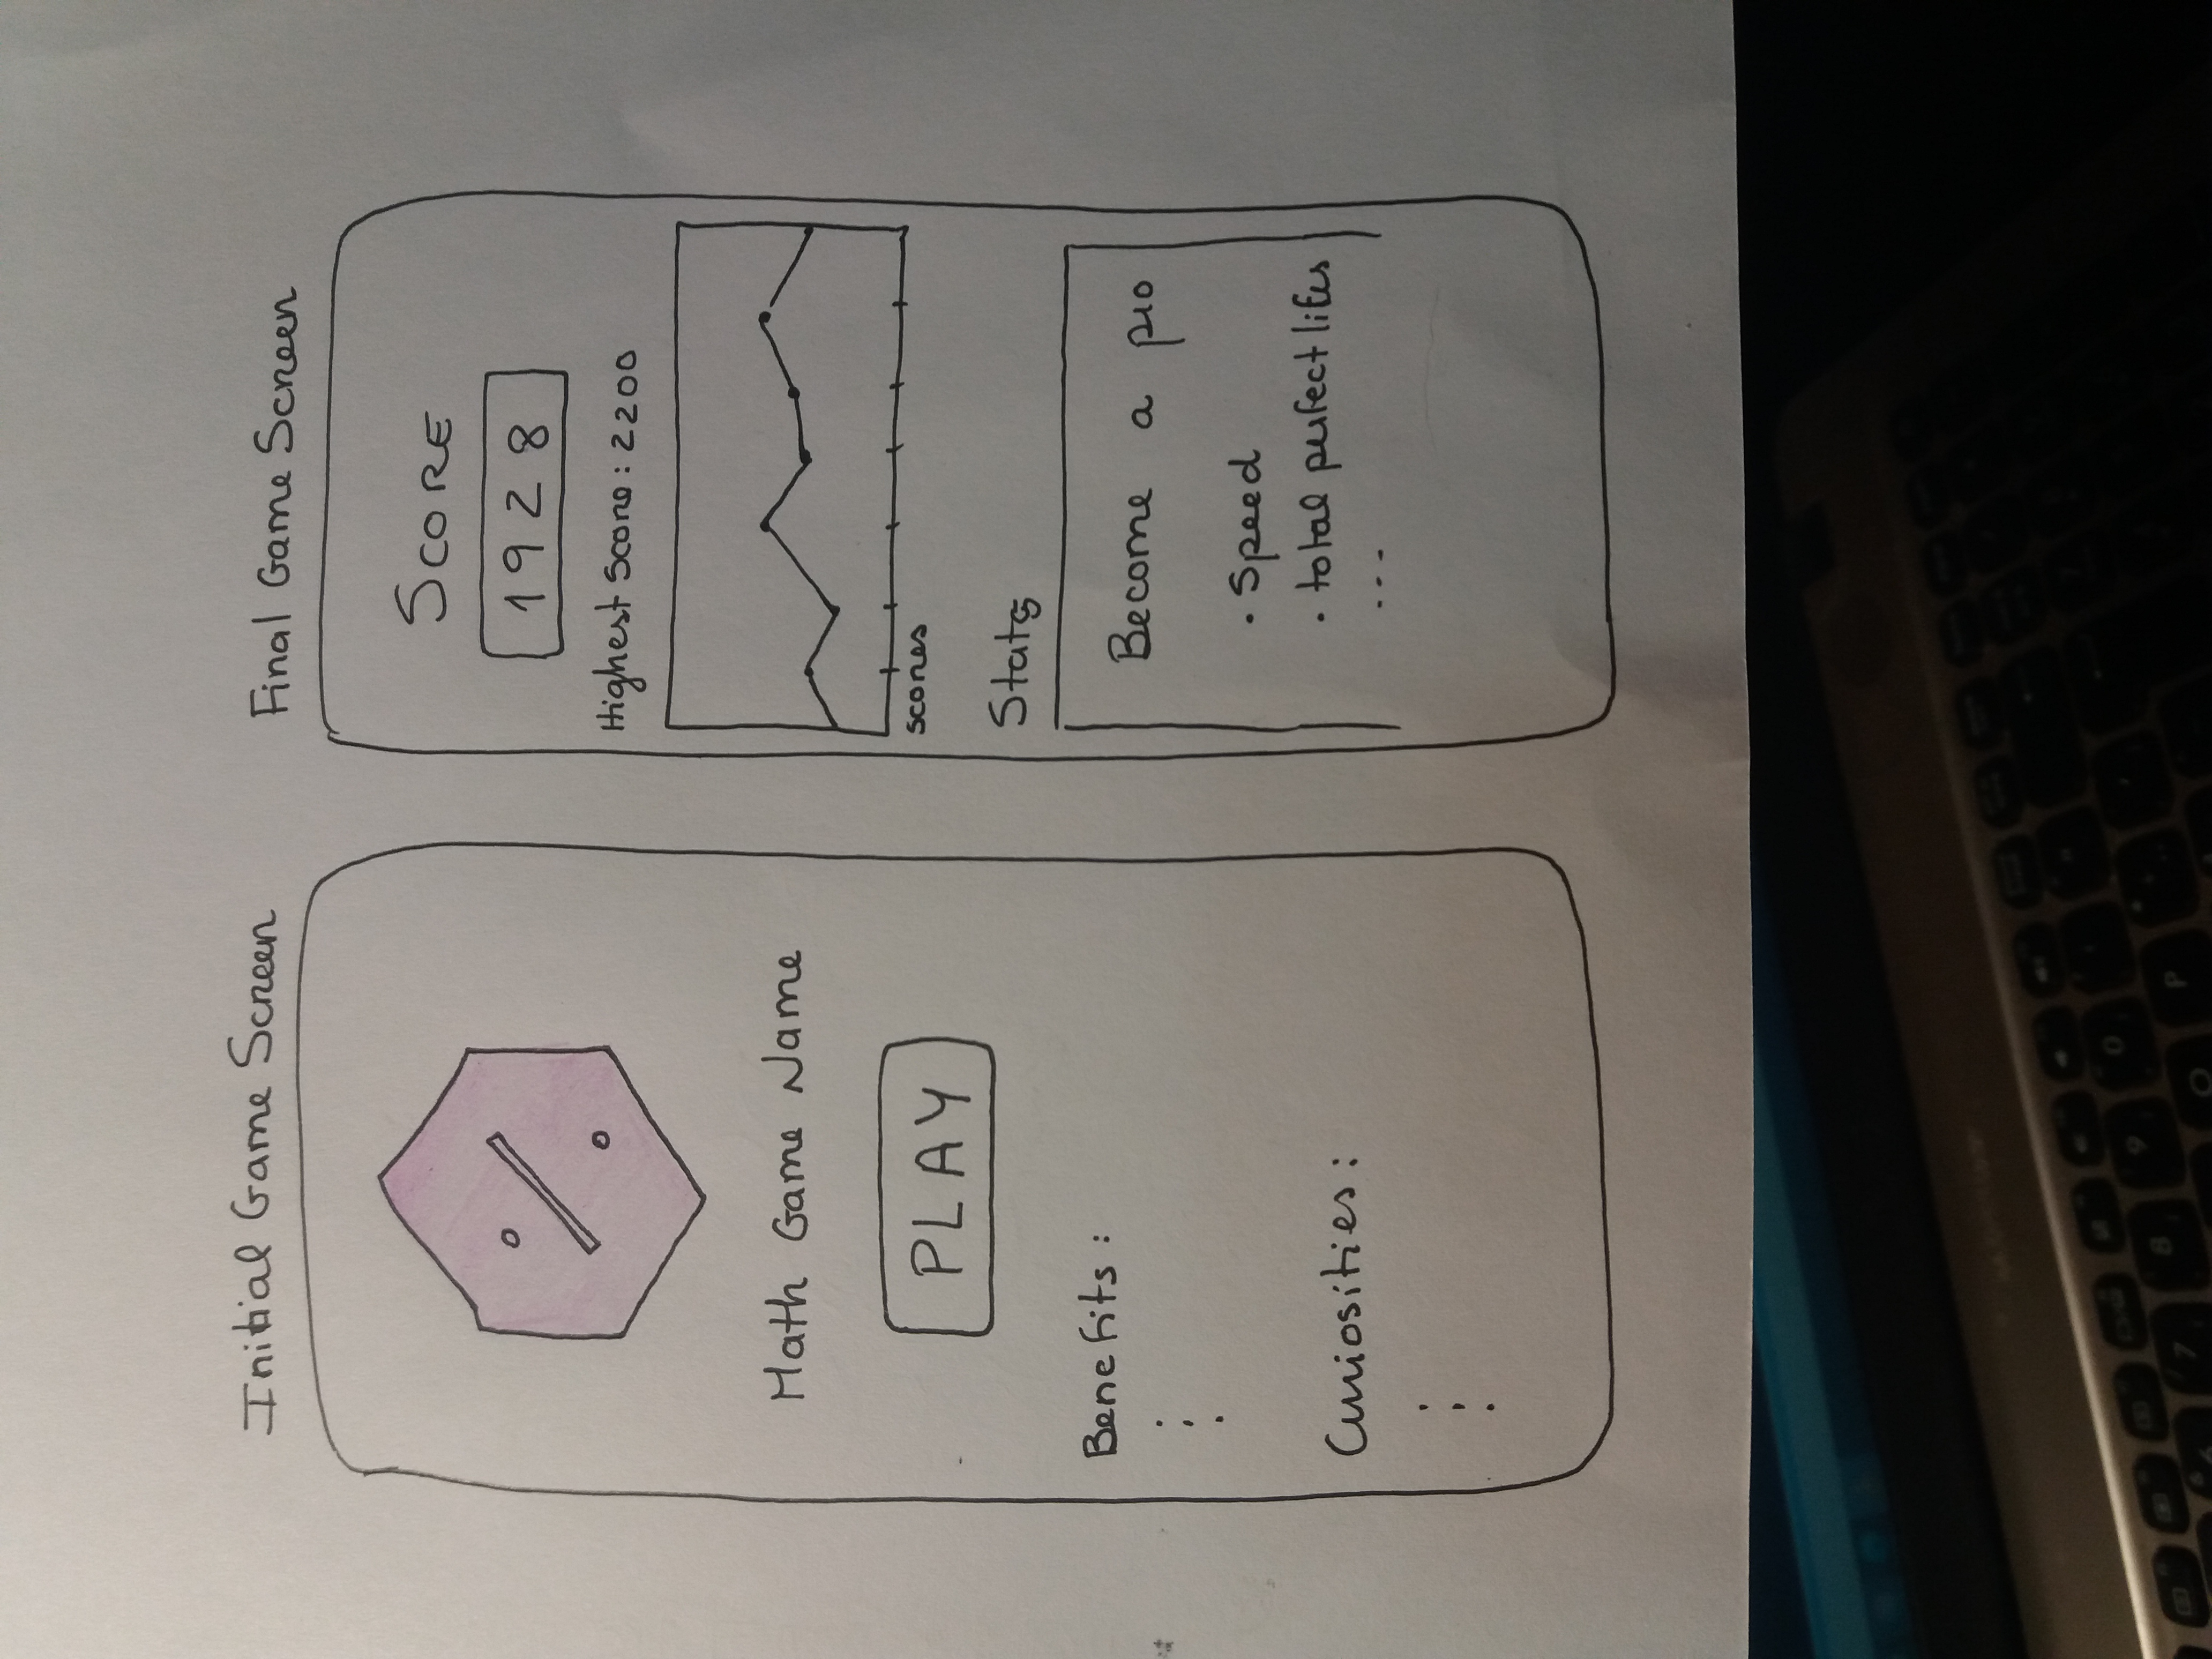 Initial Game Screen
Math Game Name
PLAY
Benefits:
Curiosities:
Final Game Screen
SCORE
1928
Highest Score: 2200
scores
Stats
Become a pro
• Speed
• total perfect lifes
...
7
8
9
0
O
P